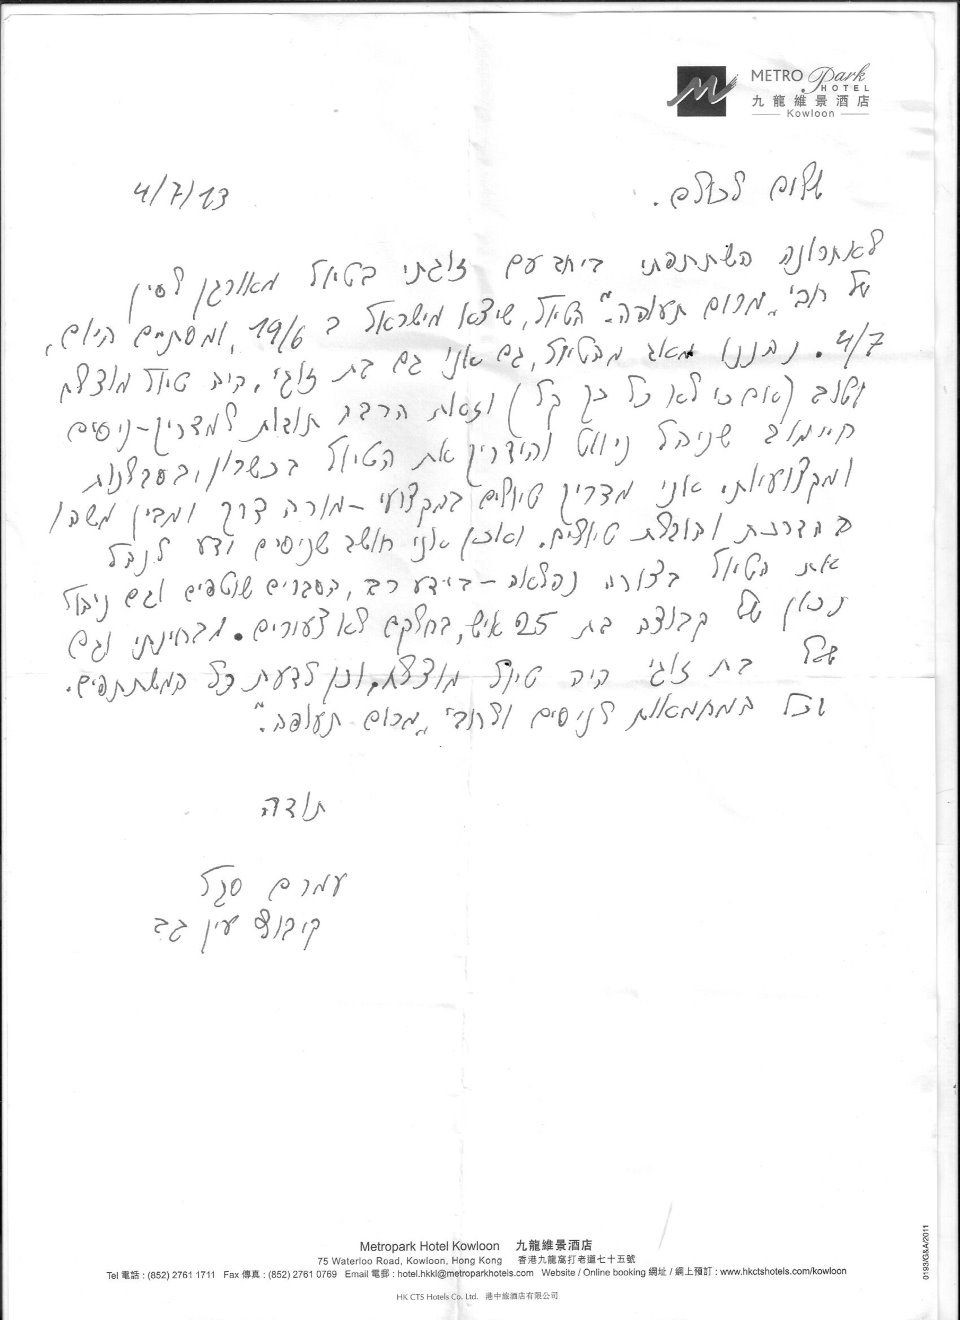 METRO Park
HOTEL
九龍維景酒店
Kowloon
4/7/13
שלום לכולם.
לאחרונה השתתפתי ביחב עם זוגתי בטיול מאורגן לסין
של חב' "מקום תעופה". הטיול, שיצא מישראל ב 19/6, ומסתיים היום,
4/7. נהננו מאוג מהטיול, גם אני גם בת זוגי. היה טיול מוצלח
וטוב (אם כי לא כל כך קל) וזאת הרבה תודות למדריך - ניסים
שניהל ניווט והידריך את הטיול בכשרון, בסבלנות
ומקצועיות. אני מדריך טיולים במקצועי - מורה דרך ומבין משהו
בהדרכת והובלת טיולים. ואכן אני חושב שניסים ידע לנהל
את הטיול בצורה נפלאה - ביידע רב, הסברים שוטפים וגם ניהול
נכון של קבוצה בת 25 איש, בחלקם לא צעורים. מבחינתי וגם
של בת זוגי היה טיול מוצלח, וכן לדעת כל המשתתפים.
וכל המחמאות לניסים ולחב' "מקום תעופה."
תודה
עמרם סגל
קיבוץ עין גב
Metropark Hotel Kowloon 九龍維景酒店
75 Waterloo Road, Kowloon, Hong Kong 香港九龍窩打老道七十五號
Tel 電話 : (852) 2761 1711 Fax 傳真 : (852) 2761 0769 Email 電郵 : hotel.hkkl@metroparkhotels.com Website / Online booking 網址 / 網上預訂 : www.hkctshotels.com/kowloon
HK CTS Hotels Co. Ltd. 港中旅酒店有限公司
0193/G&A/2011